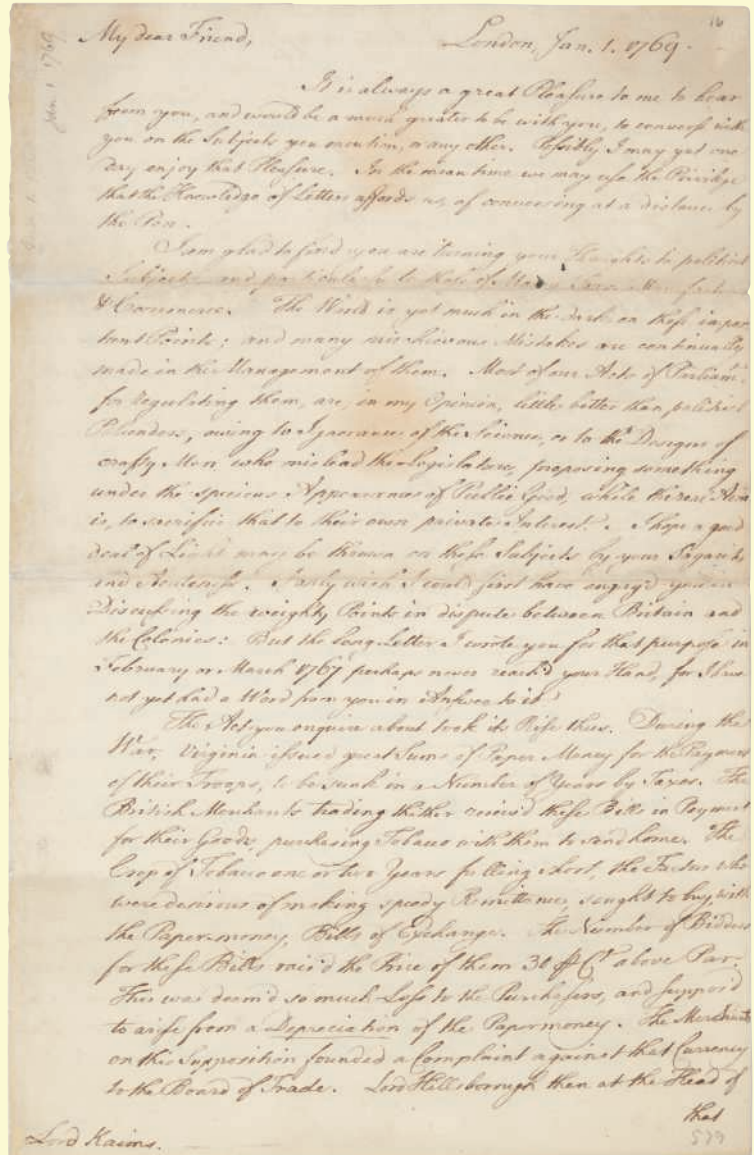 16
My dear Friend, London, Jan. 1. 1769.
Jan 1 1769
It is always a great Pleasure to me to hear
from you, and would be a much greater to be with you, to converse with
you on the Subjects you mention, or any other. Possibly I may yet one
Day enjoy that Pleasure. In the mean time we may use the Privilege
that the Knowledge of Letters affords us, of conversing at a distance by
the Pen.
I am glad to find you are turning your Thoughts to political
Subjects, and particularly to those of Money,
& Commerce. The World is yet much in the dark on these impor
tant Points; and many mischievous Mistakes are continually
made in the Management of them. Most of our Acts of Parliamt.
for regulating them, are, in my Opinion, little better than political
Blunders, owing to Ignorance of the Science, or to the Designs of
crafty Men, who mislead the Legislature, proposing something
under the specious Appearance of Public Good, while the real Aim
is, to sacrifice that to their own private Interest. I hope a good
deal of Light may be thrown on these Subjects by your Sagacity
and Acuteness. I only wish I could first have engag'd you in
Discussing the weighty Points in dispute between Britain and
the Colonies: But the long Letter I wrote you for that purpose in
February or March 1767 perhaps never reach'd your Hand, for I have
not yet had a Word from you in Answer to it.
The Act you enquire about took its Rise thus. During the
War, Virginia issued great Sums of Paper Money for the Payment
of their Troops, to be sunk in a Number of Years by Taxes. The
British Merchants trading thither receiv'd these Bills in Payment
for their Goods, purchasing Tobacco with them to send home. The
Crop of Tobacco one or two Years falling short, the Factors who
were desirous of making speedy Remittance, sought to buy, with
the Paper-money, Bills of Exchange. The Number of Bidders
for these Bills rais'd the Price of them 30 ⅌ Ct. above Par.
This was deem'd so much Loss to the Purchasers, and suppos'd
to arise from a Depreciation of the Paper money. The Merchants
on this Supposition founded a Complaint against that Currency
to the Board of Trade. Lord Hillsborough then at the Head of
that
Lord Kaims.
579